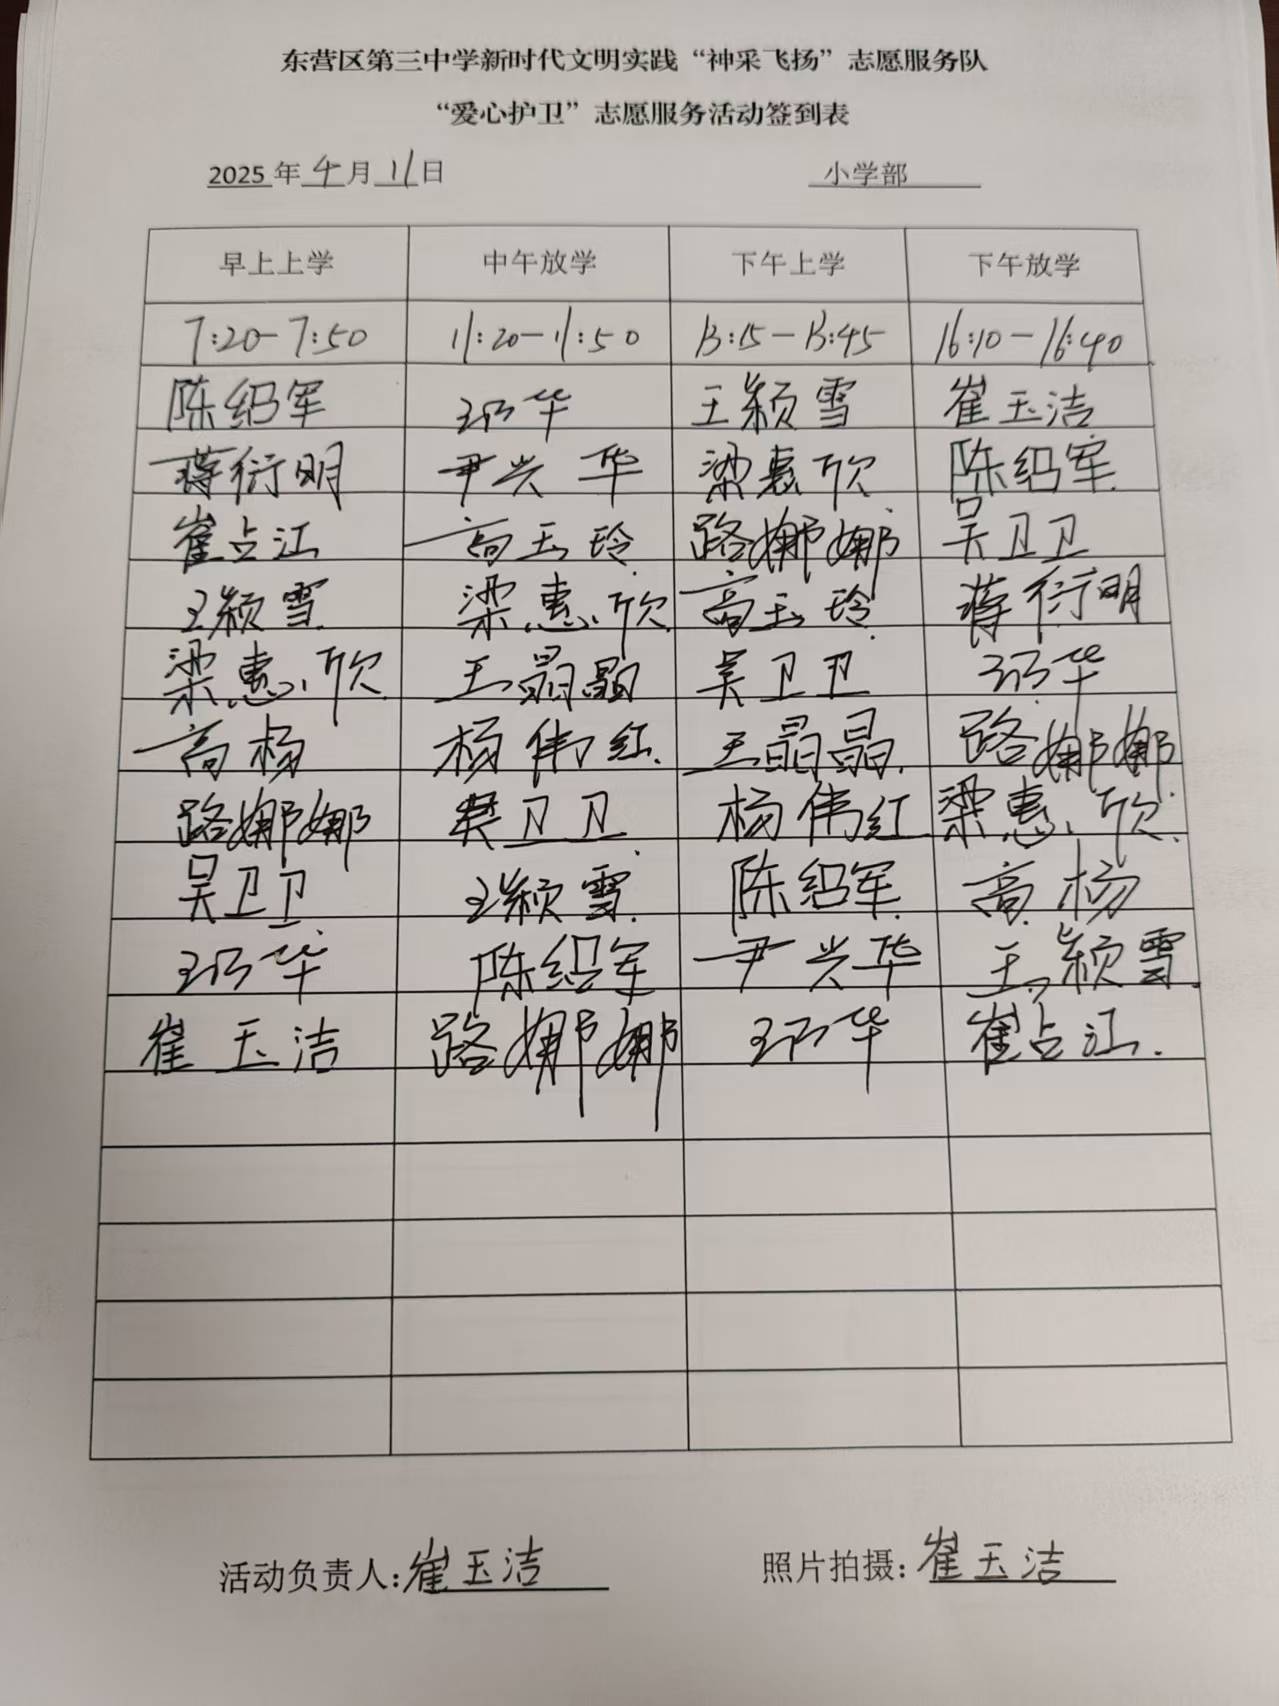 东营区第三中学新时代文明实践“神采飞扬”志愿服务队
“爱心护卫”志愿服务活动签到表
2025年4月11日 小学部
早上上学 中午放学 下午上学 下午放学
7:20-7:50 11:20-11:50 13:15-13:45 16:10-16:40
陈绍军 华 王颖雪 崔玉洁
蒋衍明 尹兴华 梁惠欣 陈绍军
崔占江 高玉玲 路娜娜 吴卫卫
王颖雪 梁惠欣 高玉玲 蒋衍明
梁惠欣 王晶晶 吴卫卫 华
高杨 杨伟红 王晶晶 路娜娜
路娜娜 吴卫卫 杨伟红 梁惠欣
吴卫卫 王颖雪 陈绍军 高杨
华 陈绍军 尹兴华 王颖雪
崔玉洁 路娜娜 华 崔占江
活动负责人:崔玉洁 照片拍摄:崔玉洁